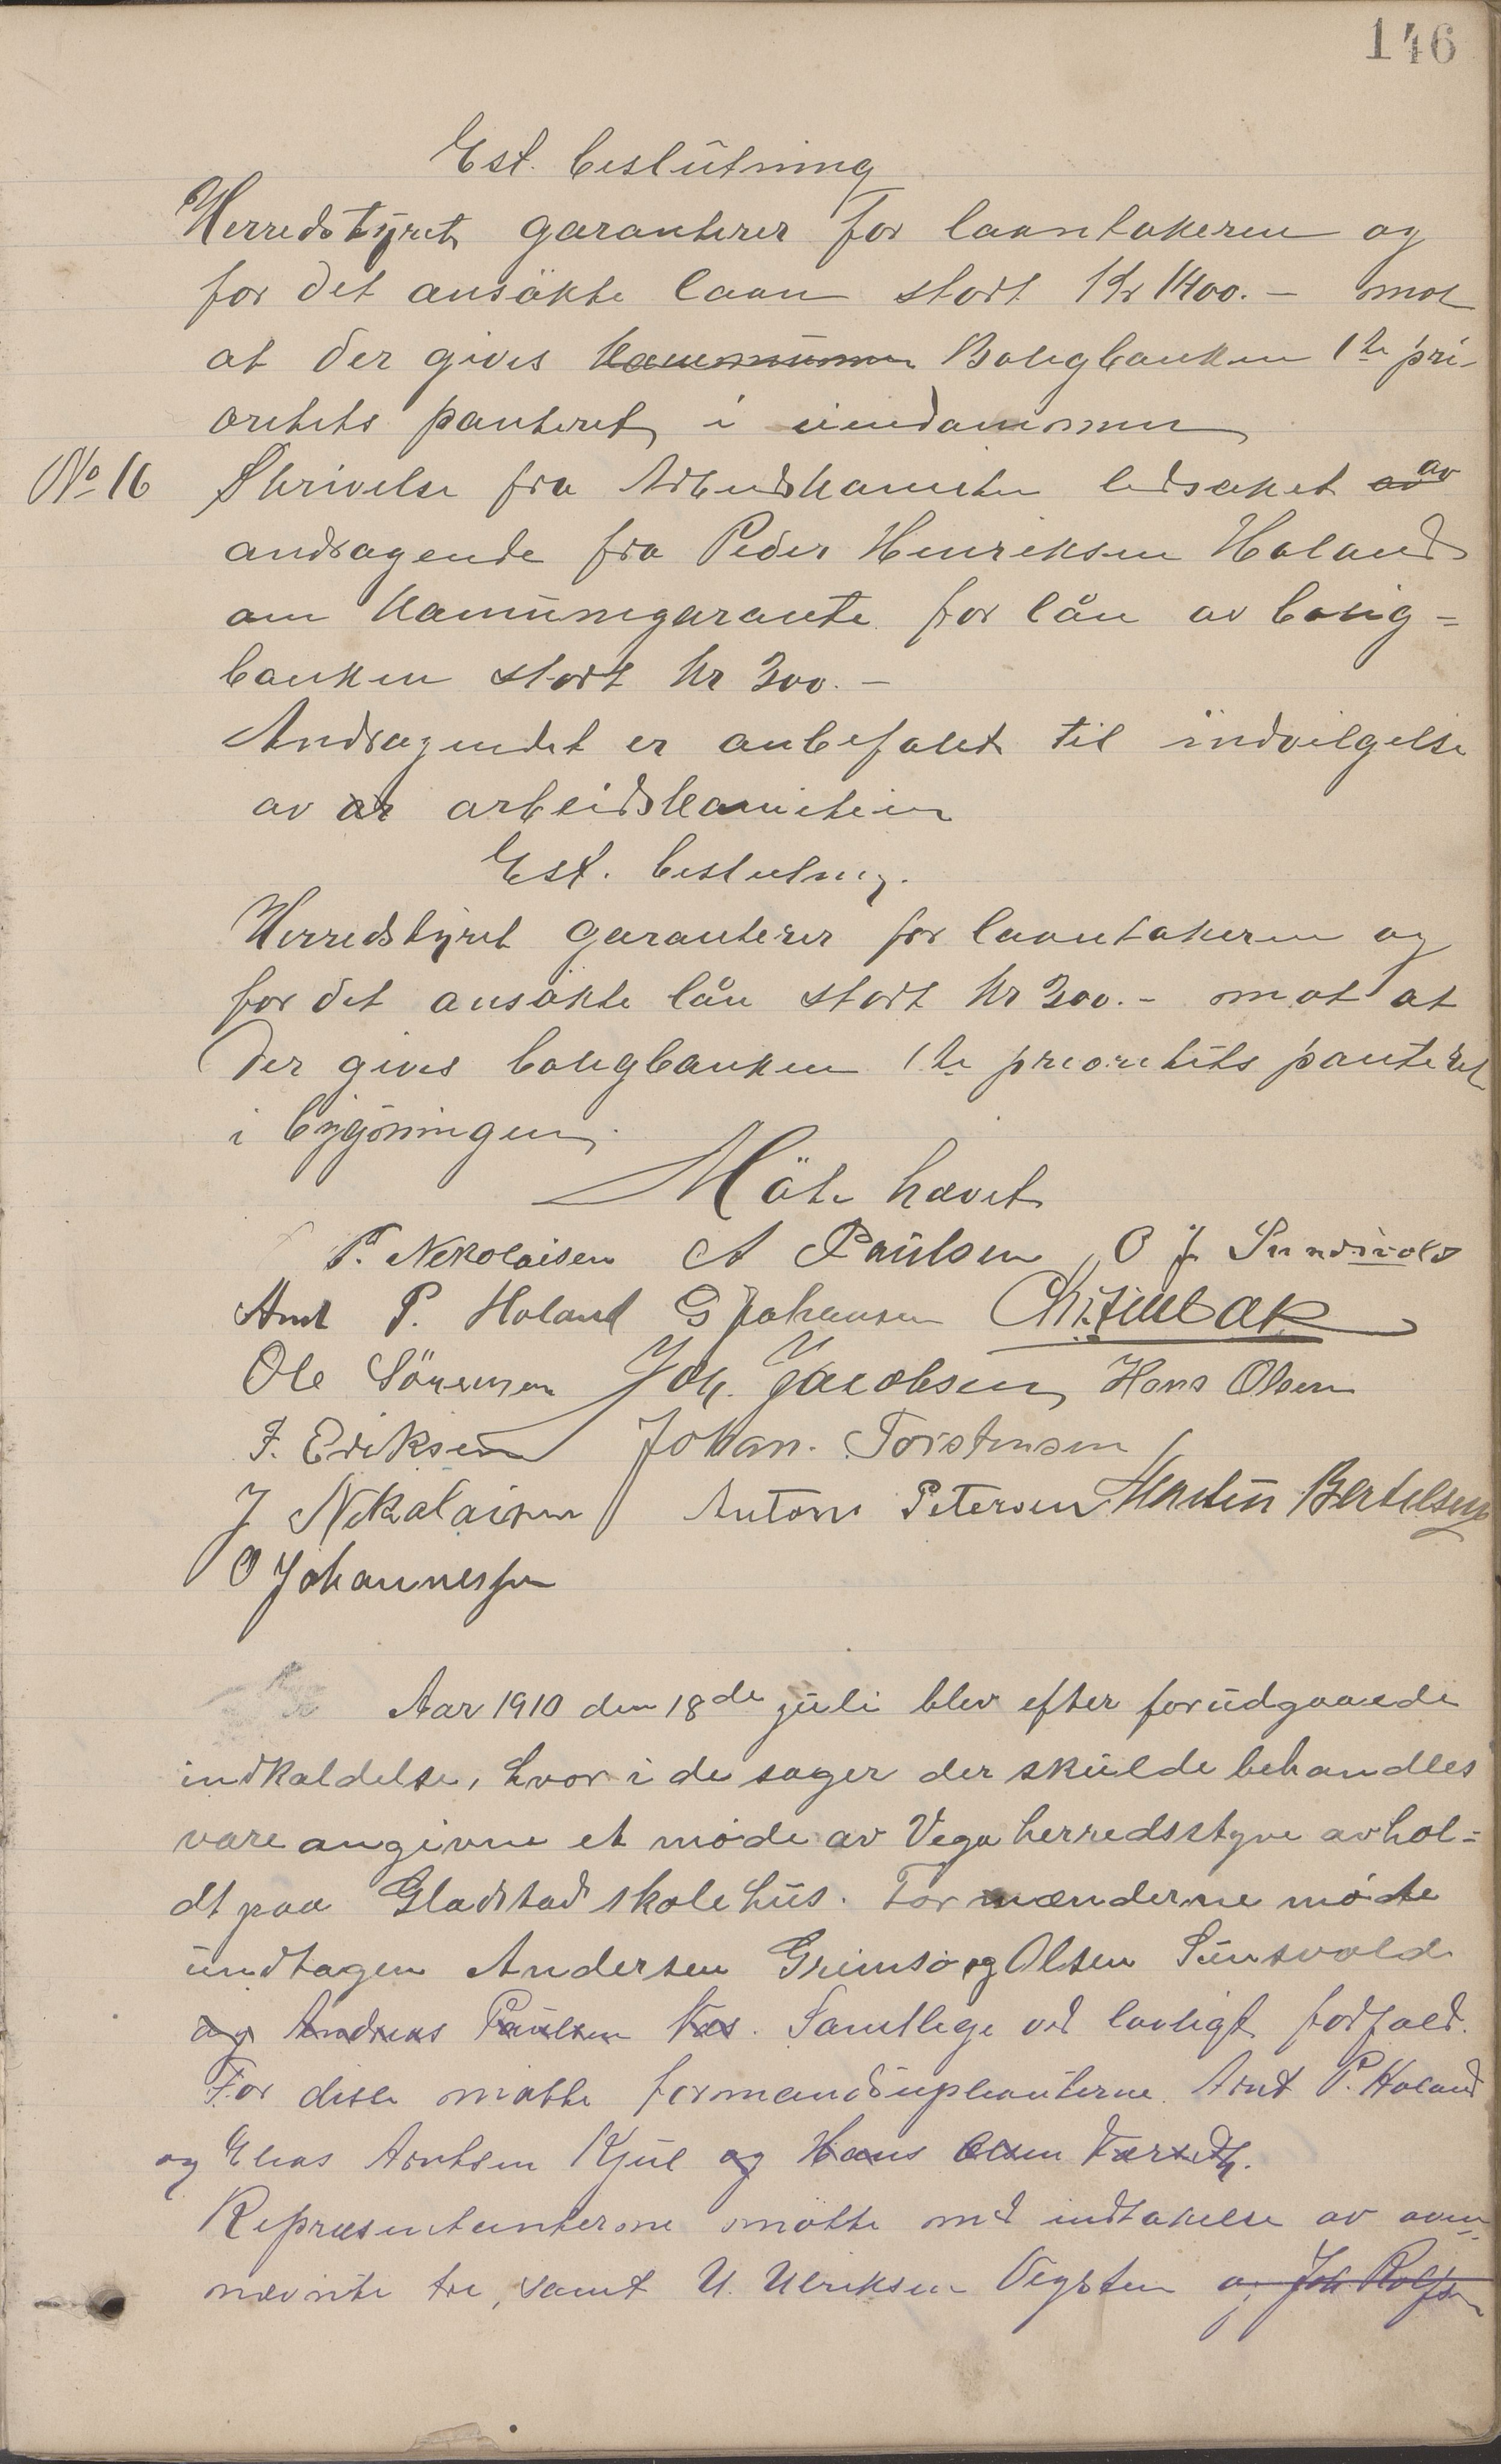 146
Est. beslutning
Herredstyret garanterer for laantakeren og
for det ansökte laan stort Kr 1400.- mot
at der gives kommunen Boligbanken 1te pri-
oritets panteret i eiendommen
No 16 Skrivelse fra Arbeidskomiten ledsaket av av
andragende fra Peder Henriksen Holand
om kommunegarante for lån av bolig=
banken stort kr 300.-
Andragendet er anbefalet til indvilgelse
av ar arbeidskomiteien
Est. beslutning.
Herredstyret garanterer for laantakeren og
for det ansökte lån stort kr 300.- mot at
der gives boligbanken 1te prioritets panteret
i bygningen.
Möte hævet
P. Nikolaisen A Paulsen O J. Sundsvold
Arnt P. Holand G Johansen
Ole Sörensen Joh. Jacobsen Hans Olsen
F. Eriksen Johan. Torstensen
J Nikolaisen Anton Petersen Martin Bertelsen
O Johannessen
Aar 1910 den 18de juli blev efter forudgaaede
indkaldelse, hvor i de sager der skulde behandles
vare angivne et møde av Vega herredsstyre avhol=
dt paa Gladstad skolehus. Formænderne mødte
undtagen Andersen Grimsø og Olsen Sunsvold
og Andreas Paulsen Nes. Samtlige ved lovligt forfald.
For disse møtte formandsuplanterne Arnt P. Holand
og Elias Arntsen Kjul og Hans Olsen
Repræsentanterne møtte med indtakelse av oven
nævnte tre, samt U. Ulriksen Vegsten og Joh Rolfsen